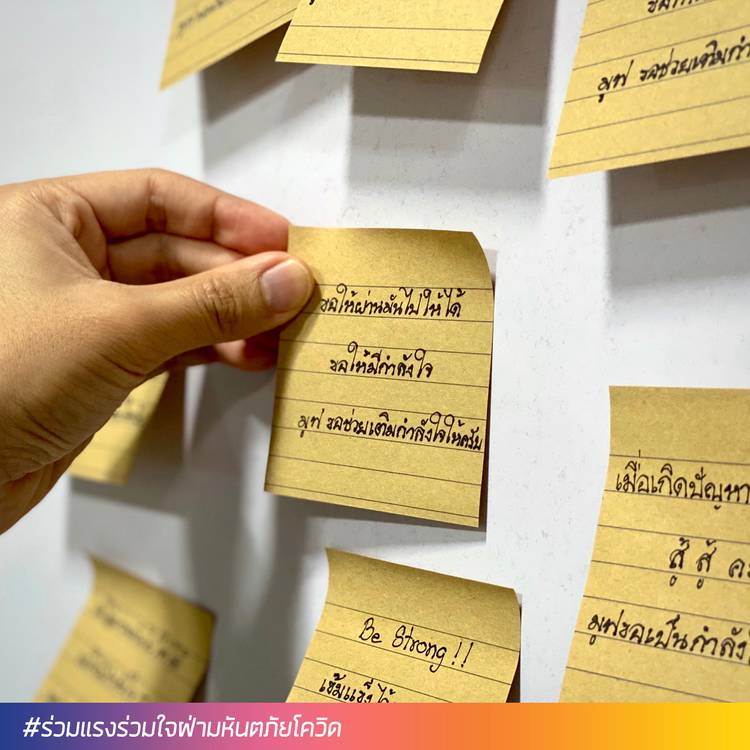 มูฟ ขอช่วยเติมกำ
ขอให้ผ่านมันไปให้ได้
ขอให้มีกำลังใจ
มูฟ ขอช่วยเติมกำลังใจให้ครับ
เมื่อเกิดปัญหา
สู้ สู้
มูฟขอเป็นกำลัง
Be Strong !!
เข้มแข็งไว้
#ร่วมแรงร่วมใจฝ่ามหันตภัยโควิด